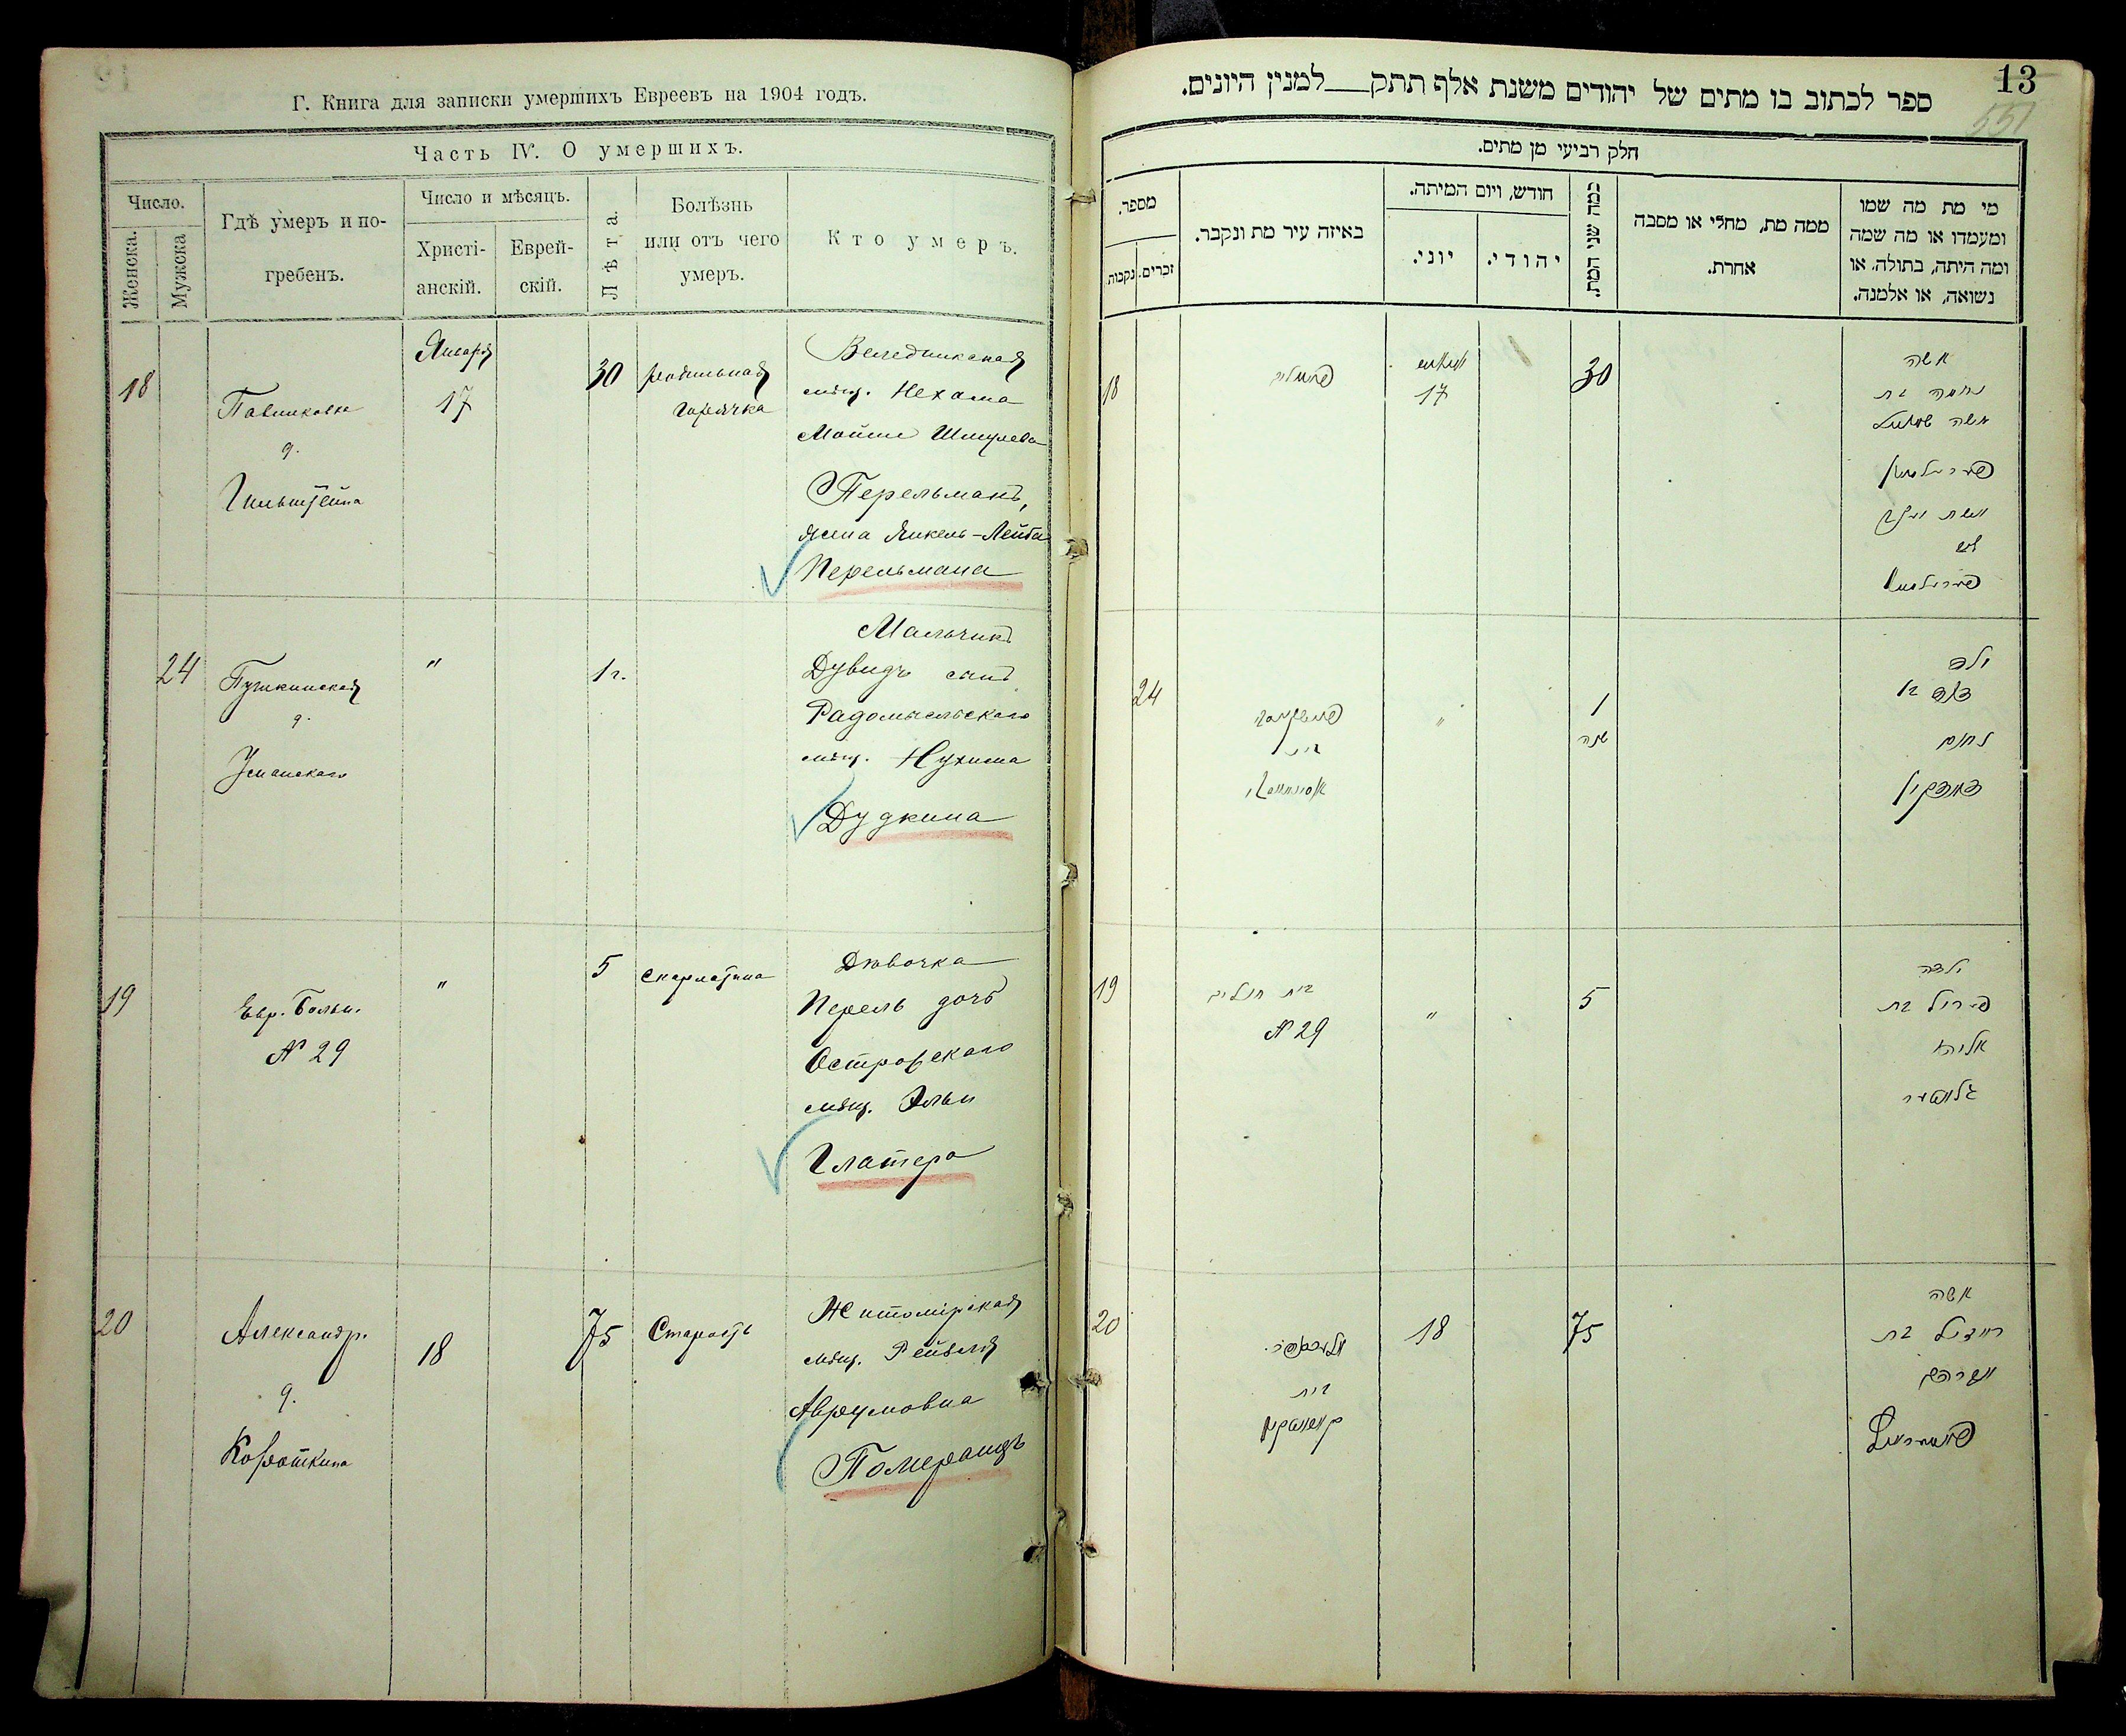 Г. Книга для записки умершихъ Евреевъ на 1904 годъ.
Часть IV. О умершихъ.
Число.
Женска.
Мужска
Гдѣ умеръ и по-
гребенъ.
Число и мѣсяцъ.
Христі-
анскій.
Еврей-
скій.
Лѣта.
Болѣзнь
или отъ чего
умеръ.
Кто умеръ.
18
Павликовка
д.
Гильштейна
Января
17
30
родильная
горячка
Веледникская
мѣщ. Нехама
Мойше Шмулева
Перельманъ,
жена Янкель-Лейба
Перельмана
24
Пушкинская
д.
Уманскаго
"
1 г.
Мальчикъ
Дувидъ сынъ
Радомысльскаго
мѣщ. Нухима
Дудкина
19
Евр. Больн.
№ 29
"
5
скарлатина
Дѣвочка
Перель дочь
Островскаго
мѣщ. Эльи
Глатера
20
Александр.
д.
Короткина
18
75
Старость
Житомірская
мѣщ. Рейзля
Аврумовна
Померанцъ
13
551
ספר לכתוב בו מתים של יהודים משנת אלף תתק למנין היונים.
חלק רביעי מן מתים.
מספר.
נקבות.
זכרים.
באיזה עיר מת ונקבר.
חודש, ויום המיתה.
יוני.
יהודי.
כמה שני המת.
ממה מת, מחלי או מסבה
אחרת.
מי מת מה שמו
ומעמדו או מה שמה
ומה היתה, בתולה. או
נשואה, או אלמנה.
18
17
30
אשה
נחמה בת
משה שמואל
פערעלמאן
אשת יעקב
ליב
פערעלמאן
24
פושקינסקי
בית
אומאנסקי
"
1
שנה
ילד
דוד בן
נחום
דודקין
19
בית חולים
№ 29
"
5
ילדה
פערל בת
אליהו
גלאטער
20
בית
18
75
אשה
רייזיל בת
אברהם
פאמעראנץ